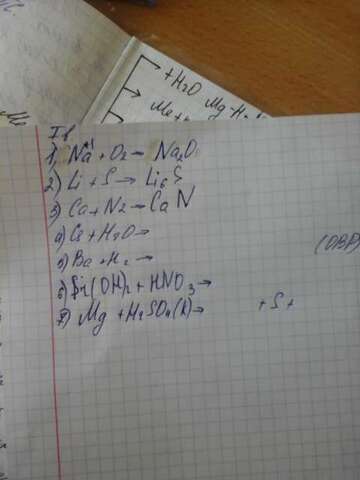 +H2O Mg-
I в
1) Na + O2 → Na2O
2) Li + S → Li6S
3) Ca + N2 → Ca N
4) Cs + H2O →
5) Ba + H2 →
(ОВР)
6) Sr(OH)2 + HNO3 →
7) Mg + H2SO4(к) → + S +